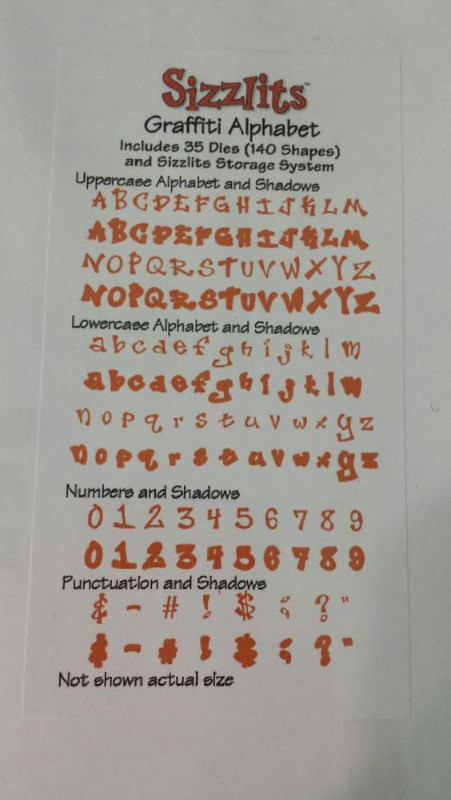 Sizzlits™
Graffiti Alphabet
Includes 35 Dies (140 Shapes)
and Sizzlits Storage System
Uppercase Alphabet and Shadows
A B C D E F G H I J K L M
A B C D E F G H I J K L M
N O P Q R S T U V W X Y Z
N O P Q R S T U V W X Y Z
Lowercase Alphabet and Shadows
a b c d e f g h i j k l m
a b c d e f g h i j k l m
n o p q r s t u v w x y z
n o p q r s t u v w x y z
Numbers and Shadows
0 1 2 3 4 5 6 7 8 9
0 1 2 3 4 5 6 7 8 9
Punctuation and Shadows
& - # ! $ ; ? "
& - # ! $ ; ? "
Not shown actual size